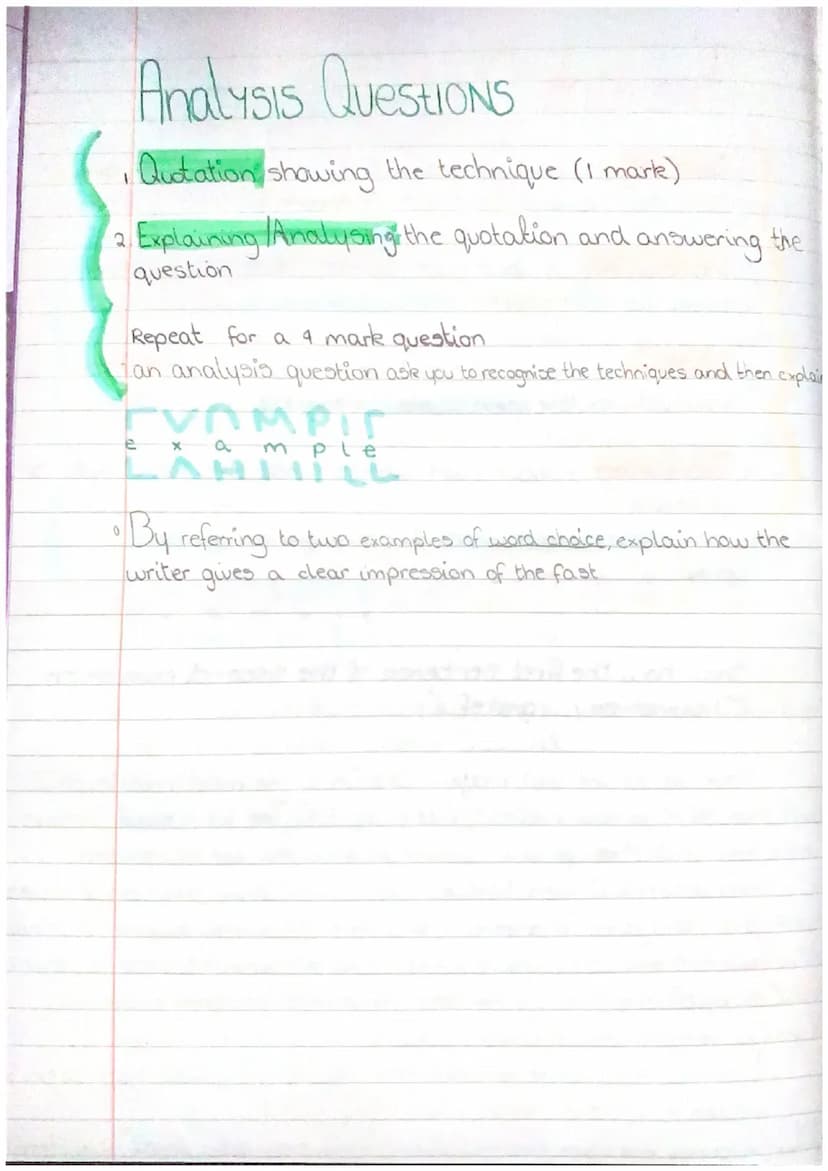 Analysis Questions
1 Quotation showing the technique (1 mark)
2. Explaining/Analysing the quotation and answering the
question
Repeat for a 4 mark question
an analysis question ask you to recognise the techniques and then explain
example
By referring to two examples of word choice, explain how the
writer gives a clear impression of the fast